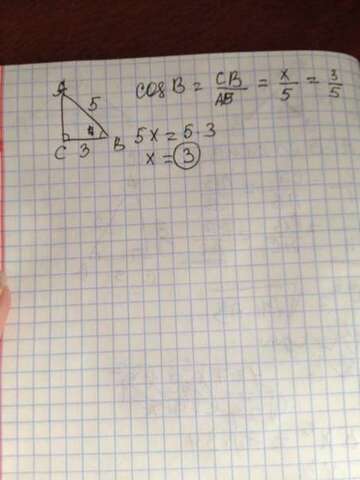 A
5
C 3 B
cos B = CB/AB = x/5 = 3/5
5x = 5·3
x = 3